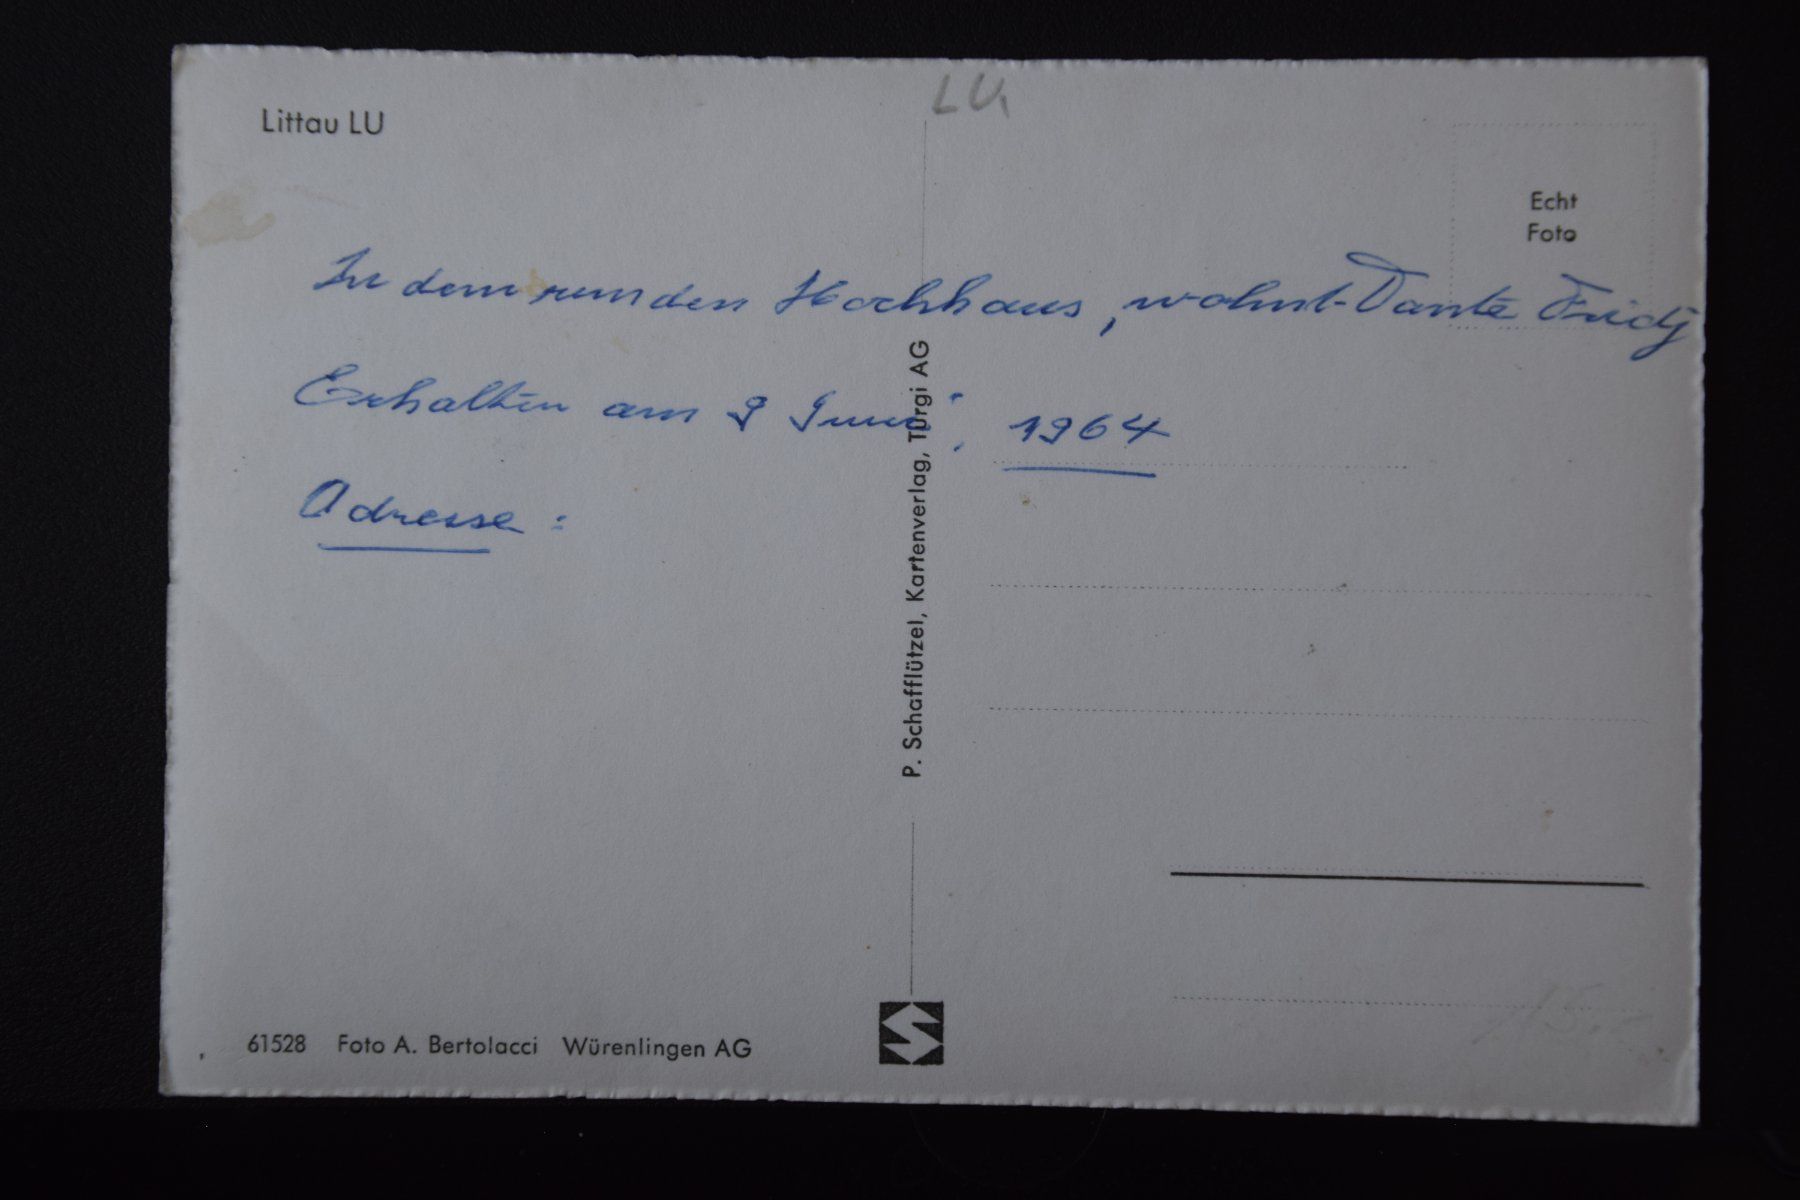 Littau LU
LU
Echt
Foto
In dem runden Hochhaus, wohnt Tante Fridy
Erhalten am 9 Juni. 1964
Adresse :
P. Schafflützel, Kartenverlag, Turgi AG
61528 Foto A. Bertolacci Würenlingen AG
15.-